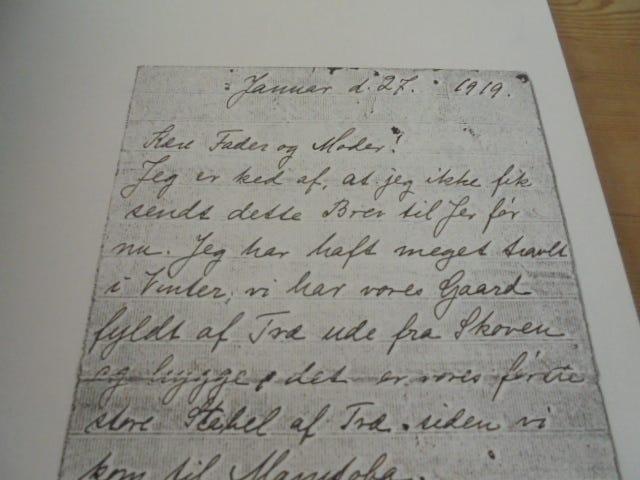 Januar d. 27. 1919.
Kære Fader og Moder!
Jeg er ked af, at jeg ikke fik
sendt dette Brev til Jer før
nu. Jeg har haft meget travlt
i Vinter, vi har vores Gaard
fyldt af Træ ude fra Skoven
og hygge, det er vores første
store Stabel af Træ siden vi
kom til Manitoba.